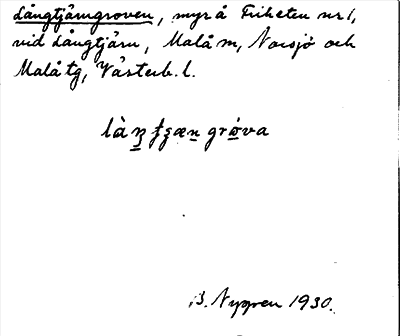 Långtjärngroven, myr å Friheten nr 1,
vid Långtjärn, Malå m, Norsjö och
Malå tg, Västerb. l.
gròva
B. Nygren 1930.